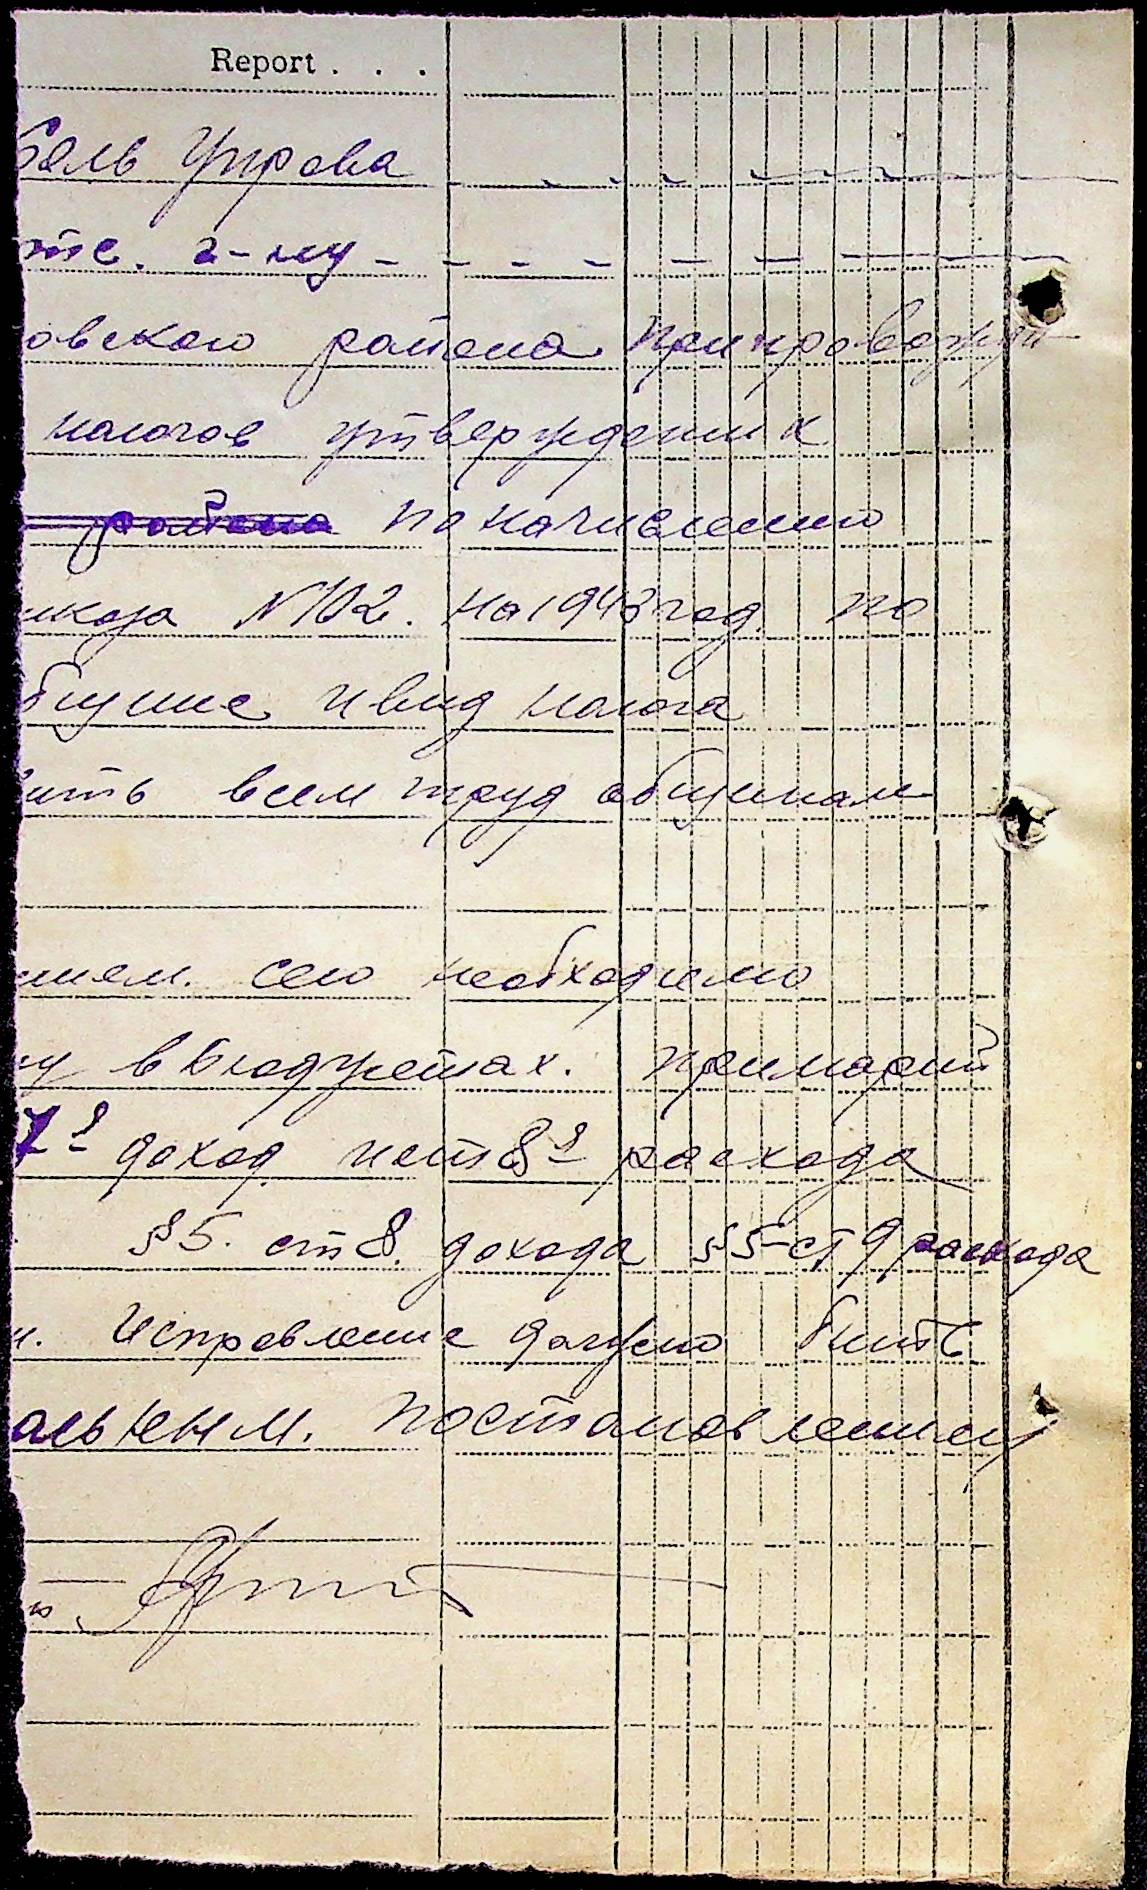 Report . . .
бель Упрова
тс. г-ну - - - - - -
овского района препровожд
налогов утвержденных
района по начислению
иказа №102. на 1943 год. по
бщине и вид налога
ить всем труд общинам
нием. сего необходимо
ну в бюджетах. примарий
7º доход и ст 8º расхода
§5. ст 8. дохода §5-ст 9 расхода
и. Исправление должно быть
альным. постановлением